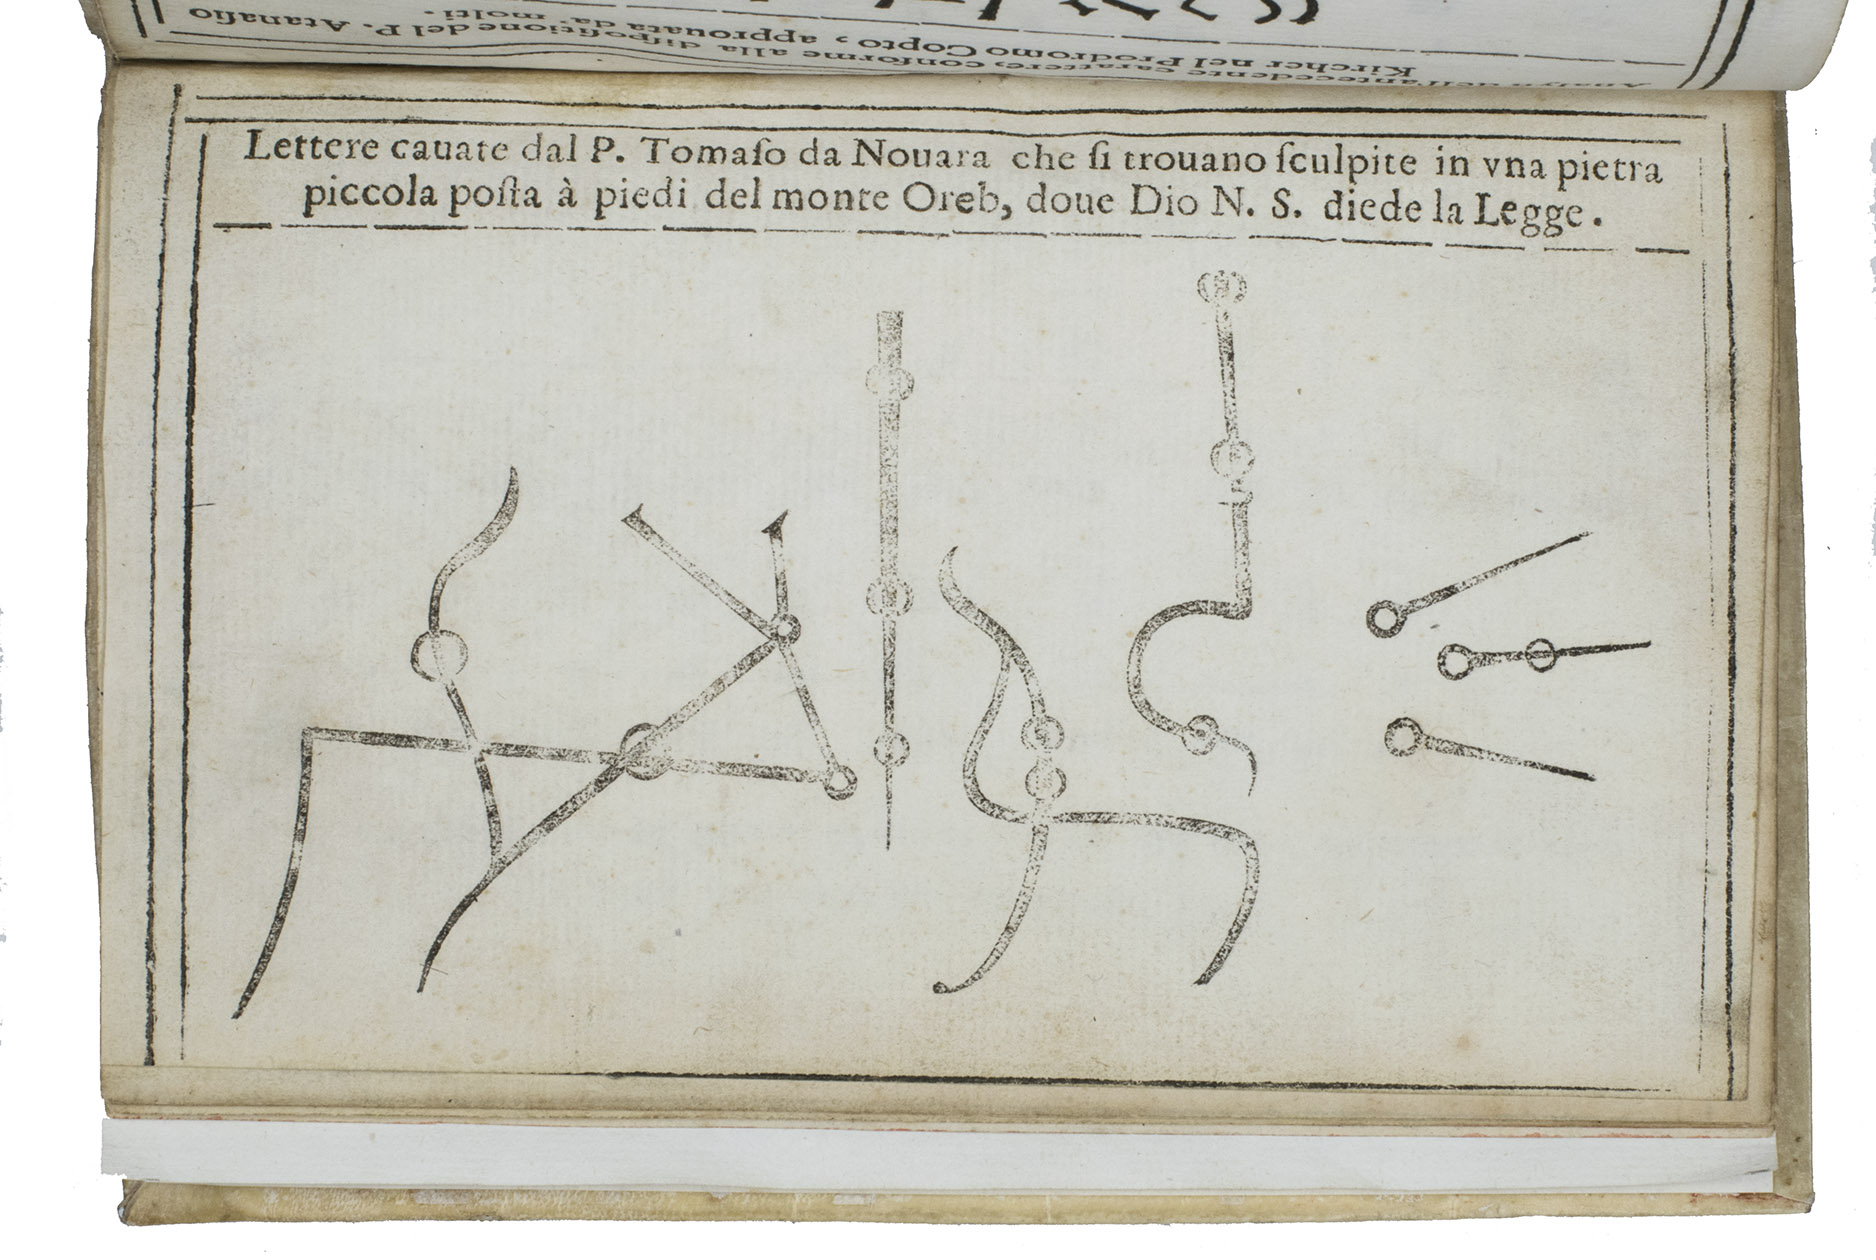 Analysi dell'antecedente carattere, conforme alla dispositione del P. Atanasio
Kircher nel Prodromo Copto, approuata da molti.
Lettere cauate dal P. Tomaſo da Nouara che ſi trouano ſculpite in vna pietra
piccola poſta à piedi del monte Oreb, doue Dio N. S. diede la Legge.